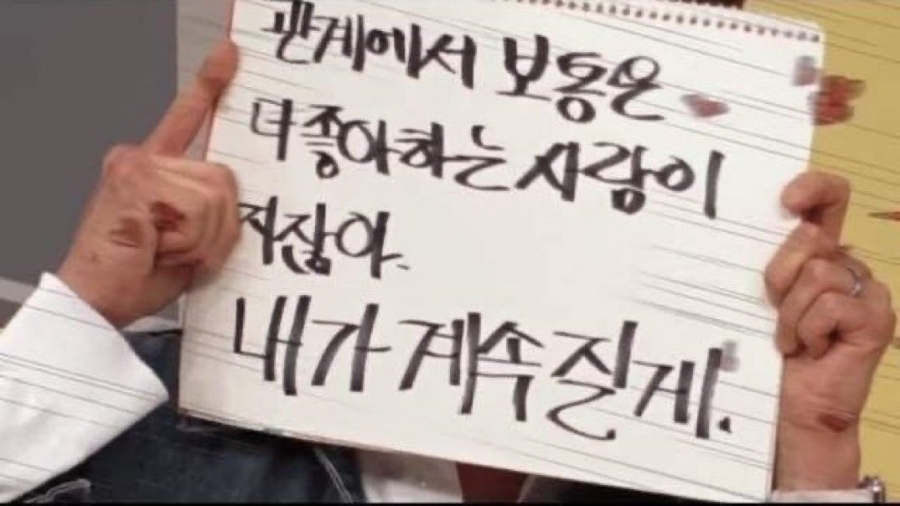 관계에서 보통은
더 좋아하는 사람이
지잖아.
내가 계속 질게.